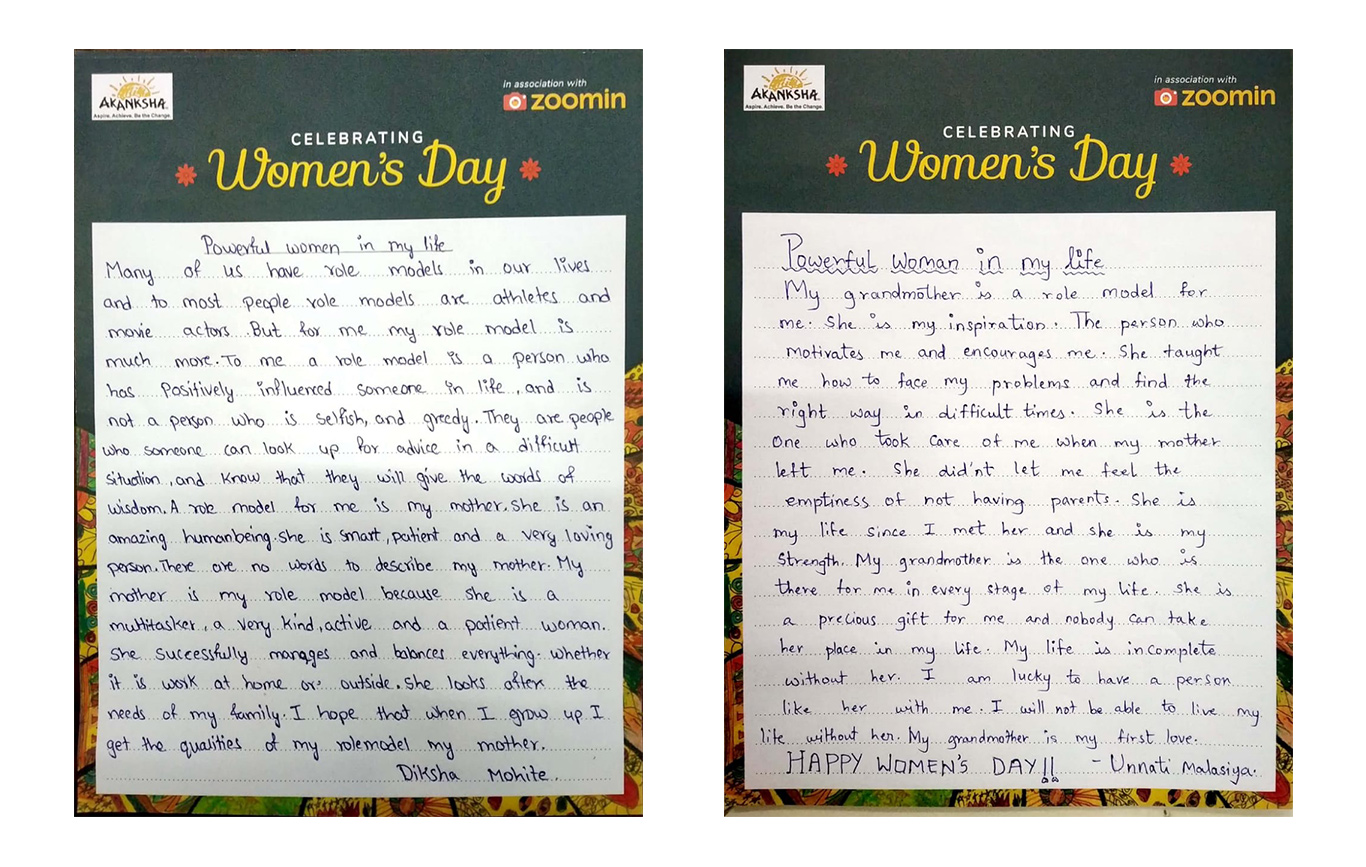 AKANKSHA
Aspire. Achieve. Be the Change.
in association with
zoomin
CELEBRATING
Women's Day
Powerful women in my life
Many of us have role models in our lives
and to most people role models are athletes and
movie actors. But for me my role model is
much more. To me a role model is a person who
has Positively influenced someone in life, and is
not a person who is selfish, and greedy. They are people
who someone can look up for advice in a difficult
situation, and know that they will give the words of
wisdom. A role model for me is my mother. She is an
amazing humanbeing. She is smart, patient and a very loving
person. There are no words to describe my mother. My
mother is my role model because she is a
multitasker, a very kind, active and a patient woman.
She successfully manages and balances everything. whether
it is work at home or outside. She looks after the
needs of my family. I hope that when I grow up I
get the qualities of my rolemodel my mother.
Diksha Mohite.
AKANKSHA
Aspire. Achieve. Be the Change.
in association with
zoomin
CELEBRATING
Women's Day
Powerful Woman in my life
My grandmother is a role model for
me. She is my inspiration. The person who
motivates me and encourages me. She taught
me how to face my problems and find the
right way in difficult times. She is the
one who took care of me when my mother
left me. She did'nt let me feel the
emptiness of not having parents. She is
my life since I met her and she is my
Strength. My grandmother is the one who is
there for me in every stage of my life. She is
a precious gift for me and nobody can take
her place in my life. My life is incomplete
without her. I am lucky to have a person
like her with me. I will not be able to live my
life without her. My grandmother is my first love.
HAPPY WOMEN'S DAY!! - Unnati Malasiya.